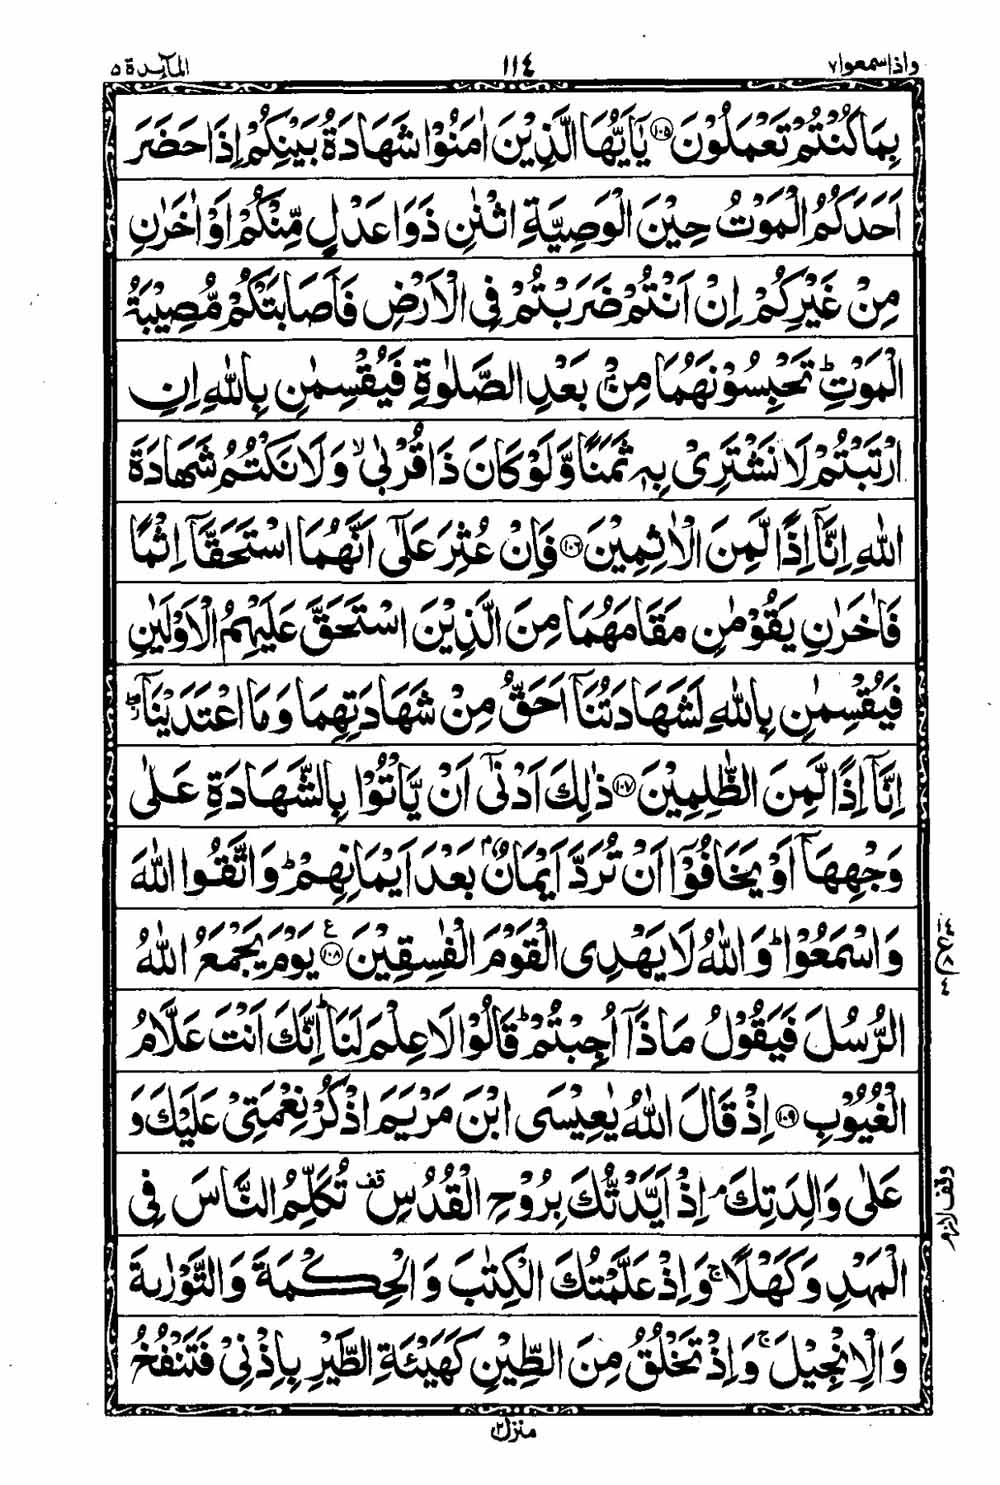 واذاسمعوا٧ ١١٤ المآىِٕدة ٥
بِمَا كُنْتُمْ تَعْمَلُوْنَ ﴿١٠٥﴾ يٰۤاَيُّهَا الَّذِيْنَ اٰمَنُوْا شَهَادَةُ بَيْنِكُمْ اِذَا حَضَرَ
اَحَدَكُمُ الْمَوْتُ حِيْنَ الْوَصِيَّةِ اثْنٰنِ ذَوَا عَدْلٍ مِّنْكُمْ اَوْ اٰخَرٰنِ
مِنْ غَيْرِكُمْ اِنْ اَنْتُمْ ضَرَبْتُمْ فِى الْاَرْضِ فَاَصَابَتْكُمْ مُّصِيْبَةُ
الْمَوْتِ ؕ تَحْبِسُوْنَهُمَا مِنْۢ بَعْدِ الصَّلٰوةِ فَيُقْسِمٰنِ بِاللّٰهِ اِنِ
ارْتَبْتُمْ لَا نَشْتَرِىْ بِهٖ ثَمَنًا وَّلَوْ كَانَ ذَا قُرْبٰى ۙ وَلَا نَكْتُمُ شَهَادَةَ
اللّٰهِ اِنَّاۤ اِذًا لَّمِنَ الْاٰثِمِيْنَ ﴿١٠٦﴾ فَاِنْ عُثِرَ عَلٰٓى اَنَّهُمَا اسْتَحَقَّاۤ اِثْمًا
فَاٰخَرٰنِ يَقُوْمٰنِ مَقَامَهُمَا مِنَ الَّذِيْنَ اسْتَحَقَّ عَلَيْهِمُ الْاَوْلَيٰنِ
فَيُقْسِمٰنِ بِاللّٰهِ لَشَهَادَتُنَاۤ اَحَقُّ مِنْ شَهَادَتِهِمَا وَمَا اعْتَدَيْنَاۤ ۖ
اِنَّاۤ اِذًا لَّمِنَ الظّٰلِمِيْنَ ﴿١٠٧﴾ ذٰلِكَ اَدْنٰٓى اَنْ يَّاْتُوْا بِالشَّهَادَةِ عَلٰى
وَجْهِهَاۤ اَوْ يَخَافُوْۤا اَنْ تُرَدَّ اَيْمَانٌۢ بَعْدَ اَيْمَانِهِمْ ؕ وَاتَّقُوا اللّٰهَ
وَاسْمَعُوْا ؕ وَاللّٰهُ لَا يَهْدِى الْقَوْمَ الْفٰسِقِيْنَ ﴿١٠٨﴾ ع يَوْمَ يَجْمَعُ اللّٰهُ
الرُّسُلَ فَيَقُوْلُ مَاذَاۤ اُجِبْتُمْ ؕ قَالُوْا لَا عِلْمَ لَنَا ؕ اِنَّكَ اَنْتَ عَلَّامُ
الْغُيُوْبِ ﴿١٠٩﴾ اِذْ قَالَ اللّٰهُ يٰعِيْسَى ابْنَ مَرْيَمَ اذْكُرْ نِعْمَتِىْ عَلَيْكَ وَ
عَلٰى وَالِدَتِكَ ۘ اِذْ اَيَّدْتُّكَ بِرُوْحِ الْقُدُسِ قف تُكَلِّمُ النَّاسَ فِى
الْمَهْدِ وَكَهْلًا ۚ وَاِذْ عَلَّمْتُكَ الْكِتٰبَ وَالْحِكْمَةَ وَالتَّوْرٰىةَ
وَالْاِنْجِيْلَ ۚ وَاِذْ تَخْلُقُ مِنَ الطِّيْنِ كَهَيْـَٔةِ الطَّيْرِ بِاِذْنِىْ فَتَنْفُخُ
وقف لازم
منزل٢